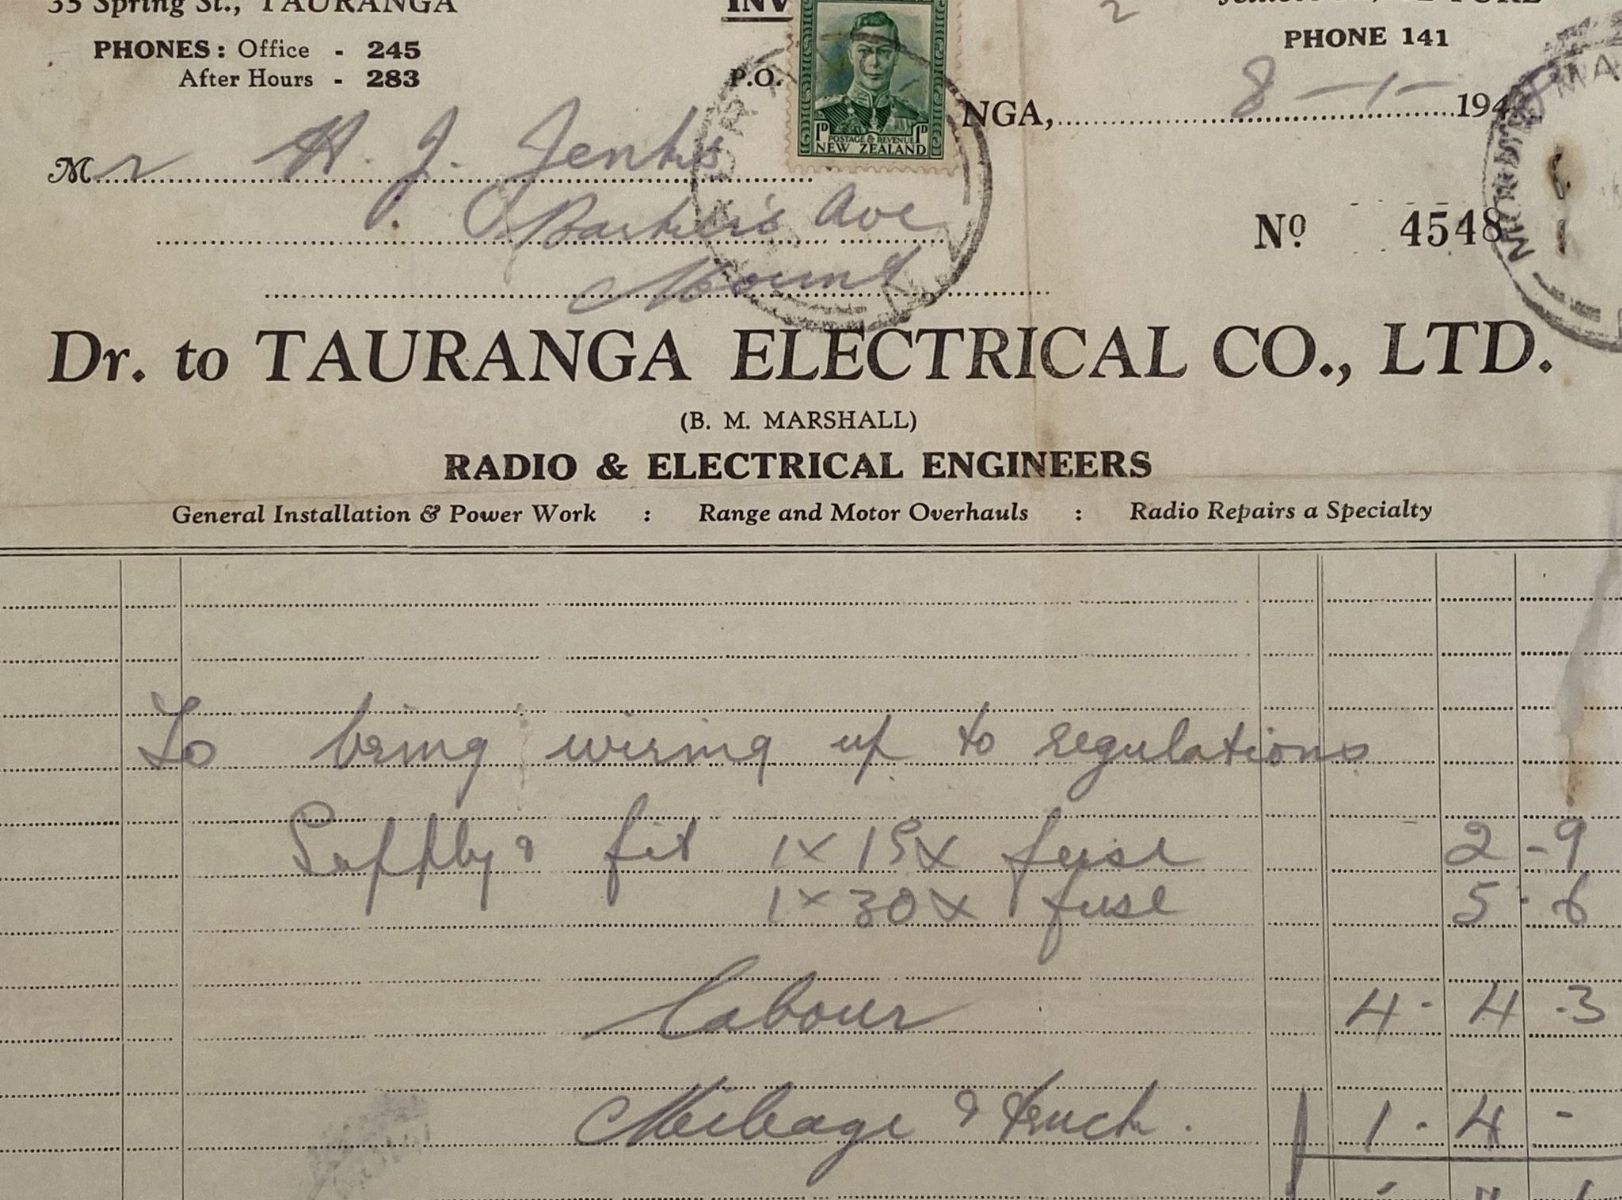 35 Spring St., TAURANGA
INV
PHONES: Office - 245
After Hours - 283
P.O.
PHONE 141
1D POSTAGE & REVENUE 1D
NEW ZEALAND
NGA, 8 - 1 - 194
Mr H. J. Jenks
Barker's Ave
Mount
No 4548
Dr. to TAURANGA ELECTRICAL CO., LTD.
(B. M. MARSHALL)
RADIO & ELECTRICAL ENGINEERS
General Installation & Power Work : Range and Motor Overhauls : Radio Repairs a Specialty
To bring wiring up to regulations
Supply & fit 1 x 15 x fuse 2 - 9
1 x 30 x fuse 5 - 6
Labour 4 - 4 - 3
Mileage & truck. 1 - 4 -